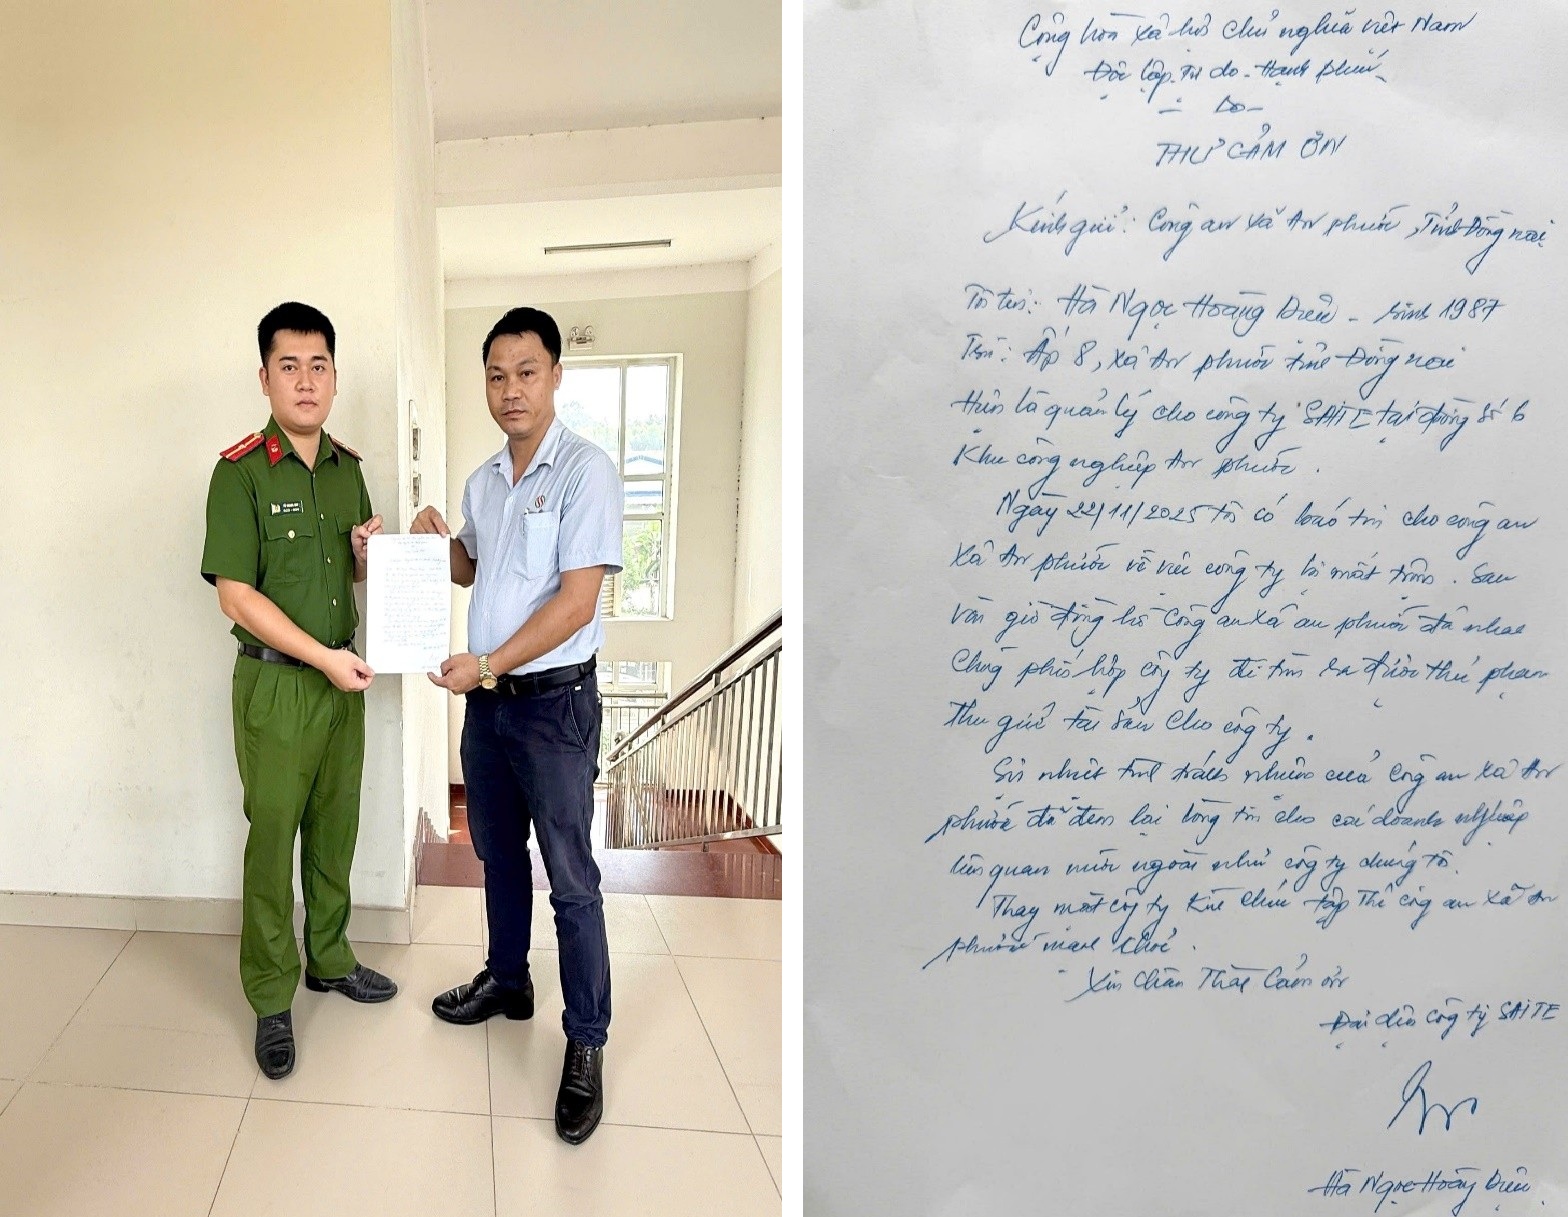 Cộng hòa xã hội chủ nghĩa việt Nam
Độc lập. Tự do - Hạnh phúc
THƯ CẢM ƠN
Kính gửi: Công an xã An phước, Tỉnh Đồng nai
Tôi tên: Hà Ngọc Hoàng Diệu - sinh 1987
Trú: Ấp 8, xã An phước tỉnh Đồng nai
Hiện là quản lý cho công ty SAITE tại đường Số 6
Khu công nghiệp An phước.
Ngày 22/11/2025 tôi có báo tin cho công an
xã An phước về việc công ty bị mất trộm. Sau
vài giờ đồng hồ công an xã an phước đã nhanh
Chóng phối hợp công ty đi tìm ra được thủ phạm
thu giữ tài sản cho công ty.
Sự nhiệt tình trách nhiệm của công an xã An
phước đã đem lại lòng tin cho các doanh nghiệp
liên quan nước ngoài như công ty chúng tôi.
Thay mặt công ty Kính Chúc tập Thể công an xã An
phước mạnh khỏe.
Xin Chân Thành Cảm ơn
Đại diện công ty SAITE
Hà Ngọc Hoàng Diệu